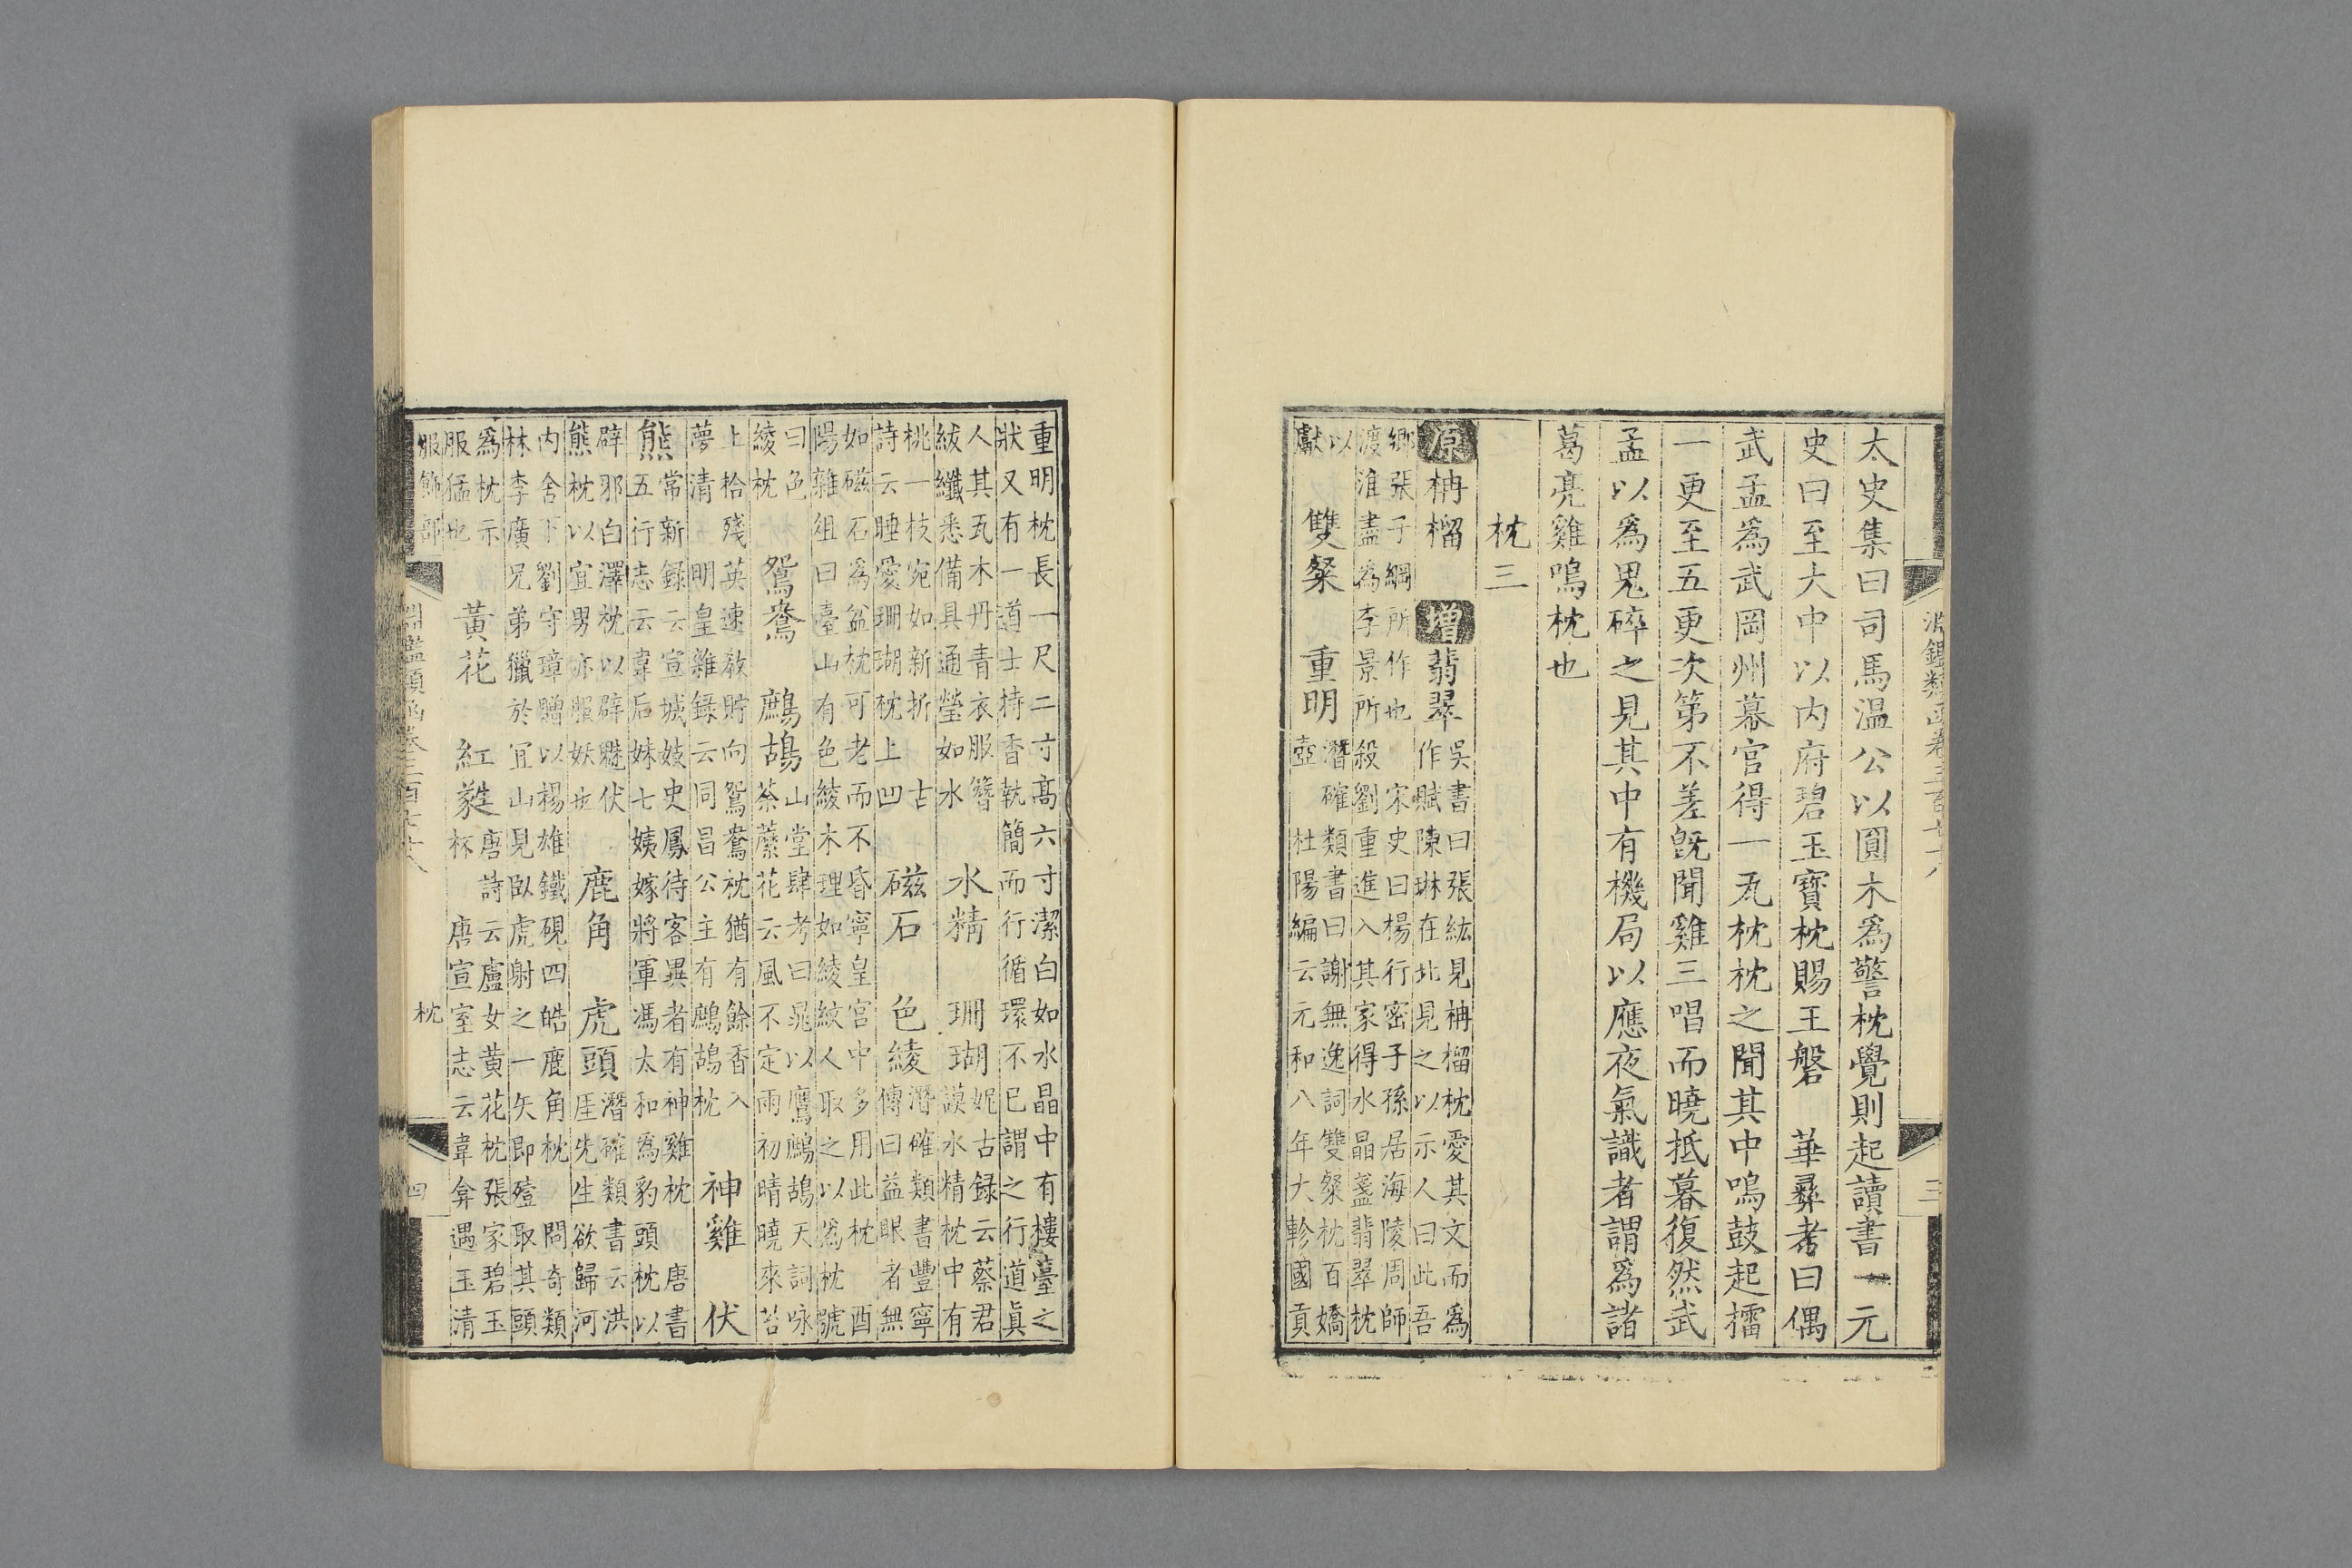 淵鑑類函卷三百七十八 三
太史集曰司馬温公以圓木爲警枕覺則起讀書 一元
史曰至大中以内府碧玉寶枕賜王磐 華彛考曰偶
武孟爲武岡州幕官得一瓦枕枕之聞其中鳴鼓起擂
一更至五更次第不差旣聞雞三唱而曉抵暮復然武
孟以爲鬼碎之見其中有機局以應夜氣識者謂爲諸
葛亮雞鳴枕也
枕三
原 柟榴 增 翡翠
吳書曰張紘見柟榴枕愛其文而爲
作賦陳琳在北見之以示人曰此吾
鄉張子綱所作也 宋史曰楊行密子孫居海陵周師
渡淮盡爲李景所殺劉重進入其家得水晶盞翡翠枕
以
獻
雙粲 重明
潛確類書曰謝無逸詞雙粲枕百嬌
壺 杜陽編云元和八年大軫國貢
重明枕長一尺二寸高六寸潔白如水晶中有樓臺之
狀又有一道士持香執簡而行循環不已謂之行道眞
人其瓦木丹青衣服簪
紱纖悉備具通瑩如水
水精 珊瑚
妮古録云蔡君
謨水精枕中有
桃一枝宛如新折 古
詩云睡愛珊瑚枕上凹
磁石 色綾
潛確類書豐寧
傳曰益眼者無
如磁石爲盆枕可老而不昏寧皇宫中多用此枕 酉
陽雜俎曰臺山有色綾木理如綾紋人取之以爲枕號
曰色
綾枕
鴛鴦 鷓鴣
山堂肆考曰晁以鷹鷓鴣天詞咏
荼蘼花云風不定雨初晴曉來苔
上拾殘英速教貯向鴛鴦枕猶有餘香入
夢清 明皇雜録云同昌公主有鷓鴣枕
神雞 伏
熊
常新録云宣城妓史鳳待客異者有神雞枕 唐書
五行志云韋后妹七姨嫁將軍馮太和爲豹頭枕以
辟邪白澤枕以辟魅伏
熊枕以宜男亦服妖也
鹿角 虎頭
潛確類書云洪
厓先生欲歸河
内舍下劉守璋贈以楊雄鐵硯四皓鹿角枕 問奇類
林李廣兄弟獵於宜山見臥虎射之一矢即殪取其頭
爲枕示
服猛也
黄花 紅蕤
唐詩云盧女黄花枕張家碧玉
杯 唐宣室志云韋弇遇玉清
服飾部 淵鑑類函卷三百七十八 枕 四